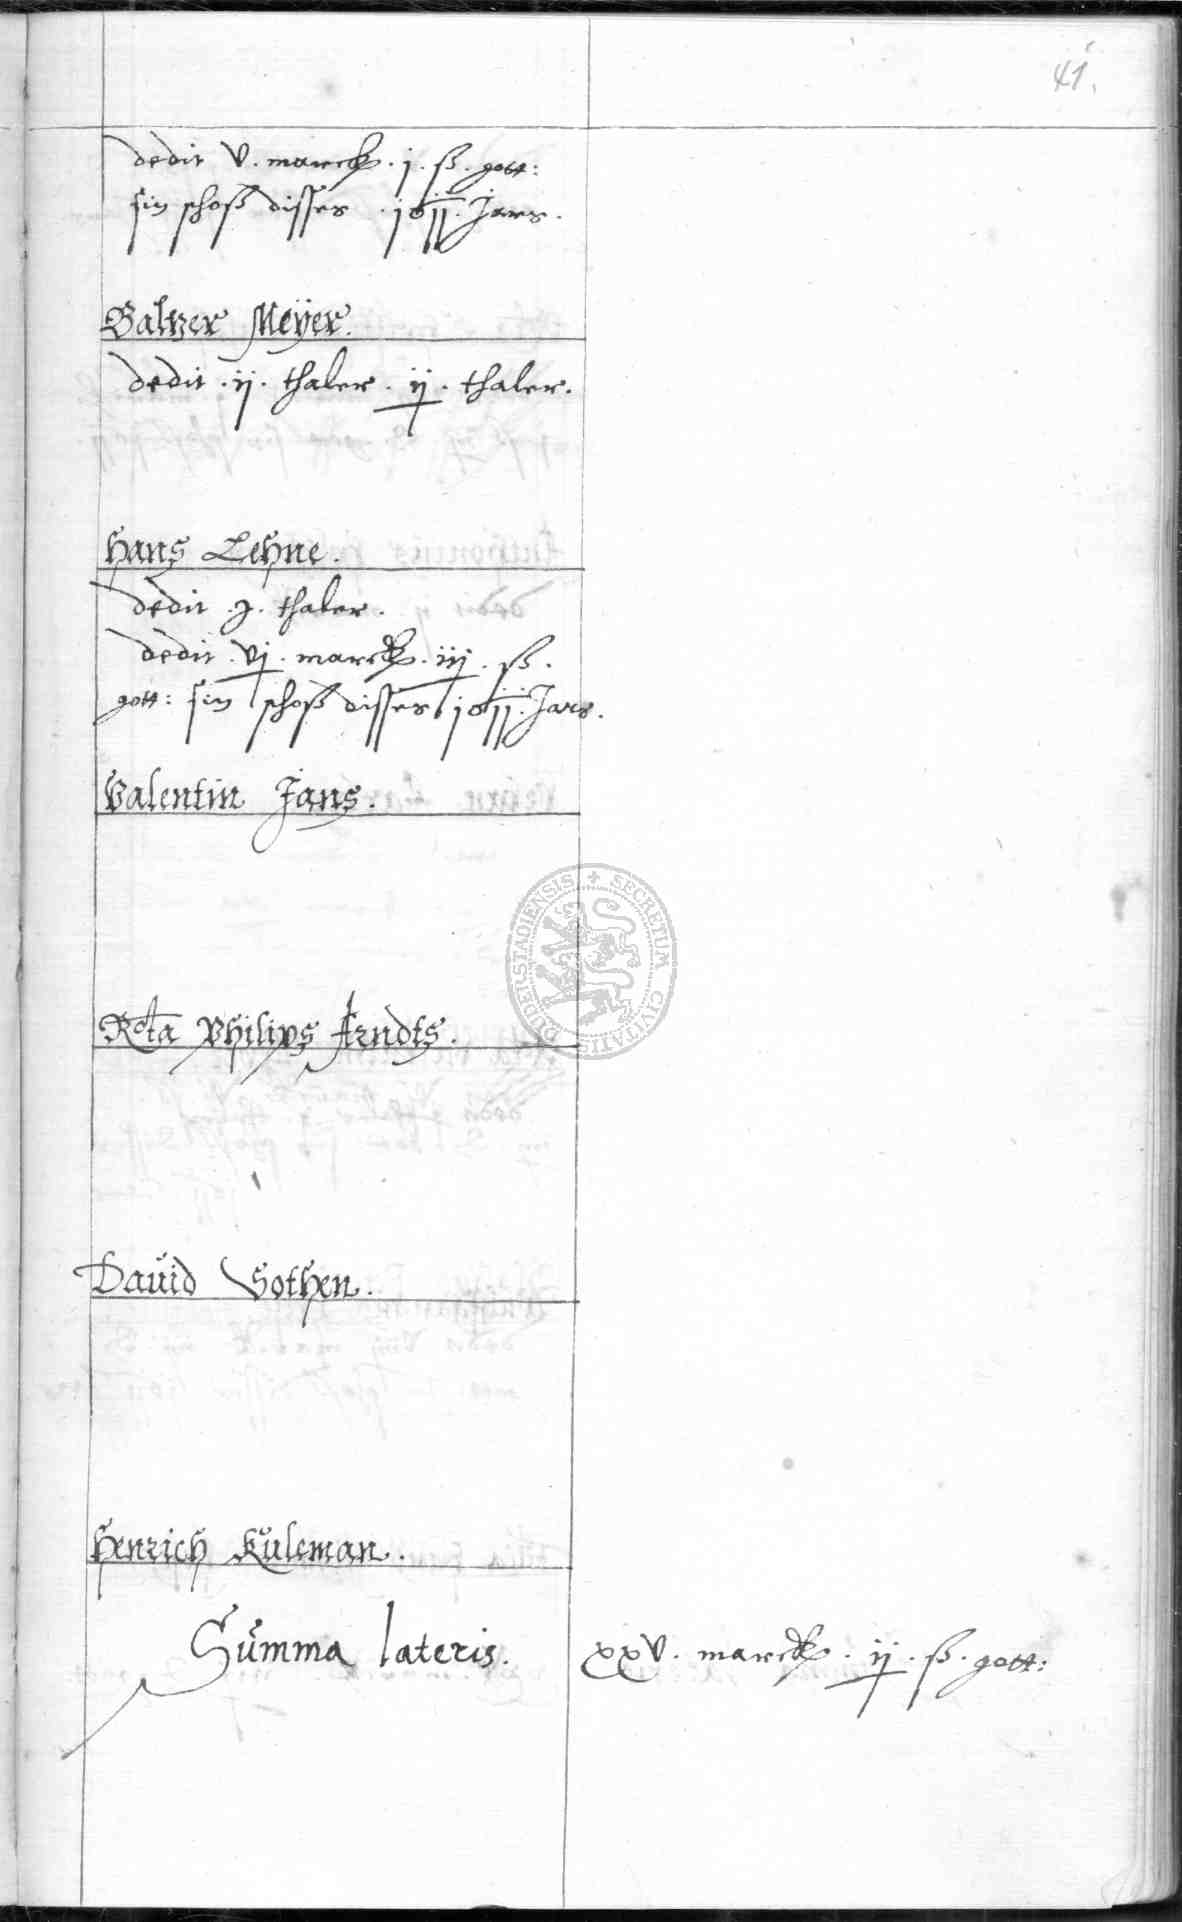 41.
dedit v. marck. j. ß. gott:
sin schoß disses .1611. Jars.
Baltzer Meÿer.
dedit .ij. thaler. ij. thaler.
Hans Lehne.
dedit .j. thaler.
dedit .vj. marck. iij. ß.
gott: sin schoß disses 1611. Jars.
Valentin Jans.
Rcta Philips Arndts.
Dauid Gothen.
Henrich Kuleman.
Summa lateris. xxv. marck. ij. ß. gott:
DUDERSTADIENSIS + SECRETUM CIVITATIS